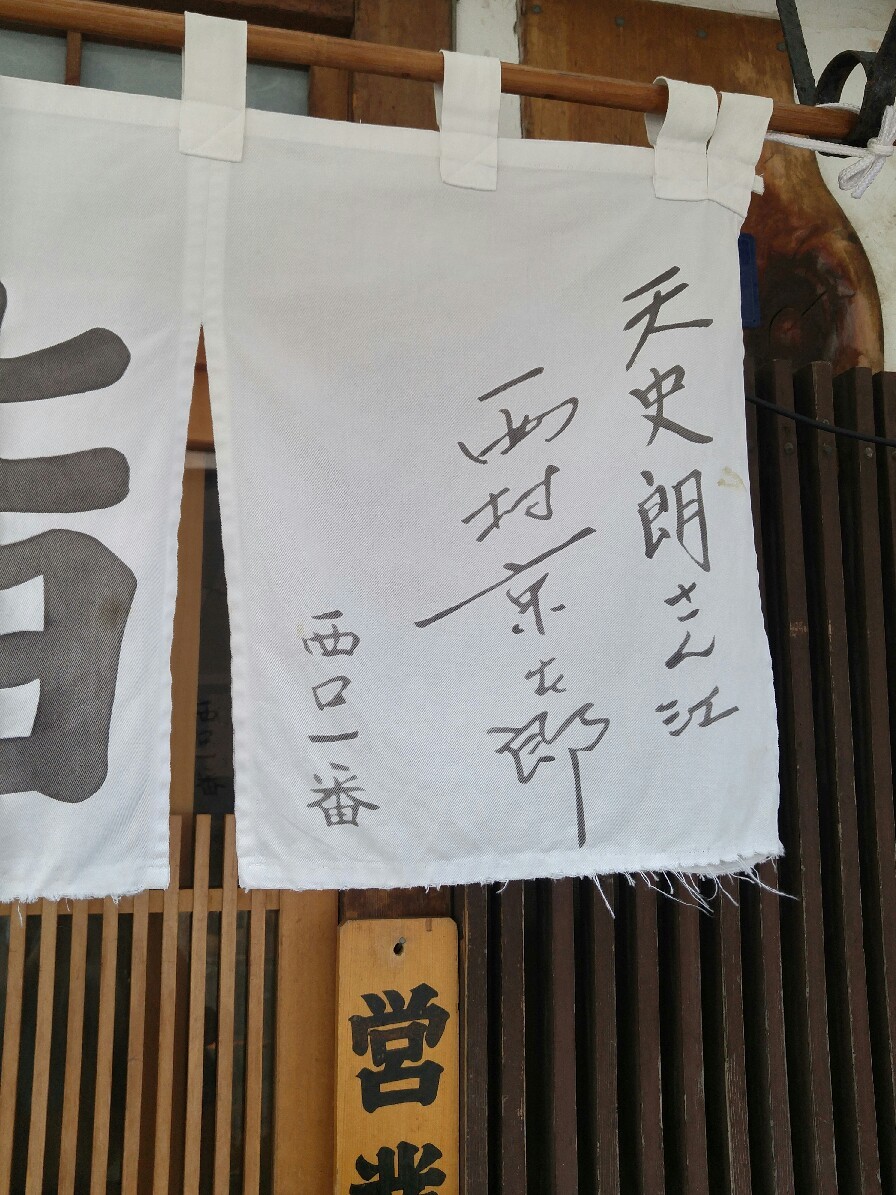 天史朗さん江
西村京太郎
西口一番
営業